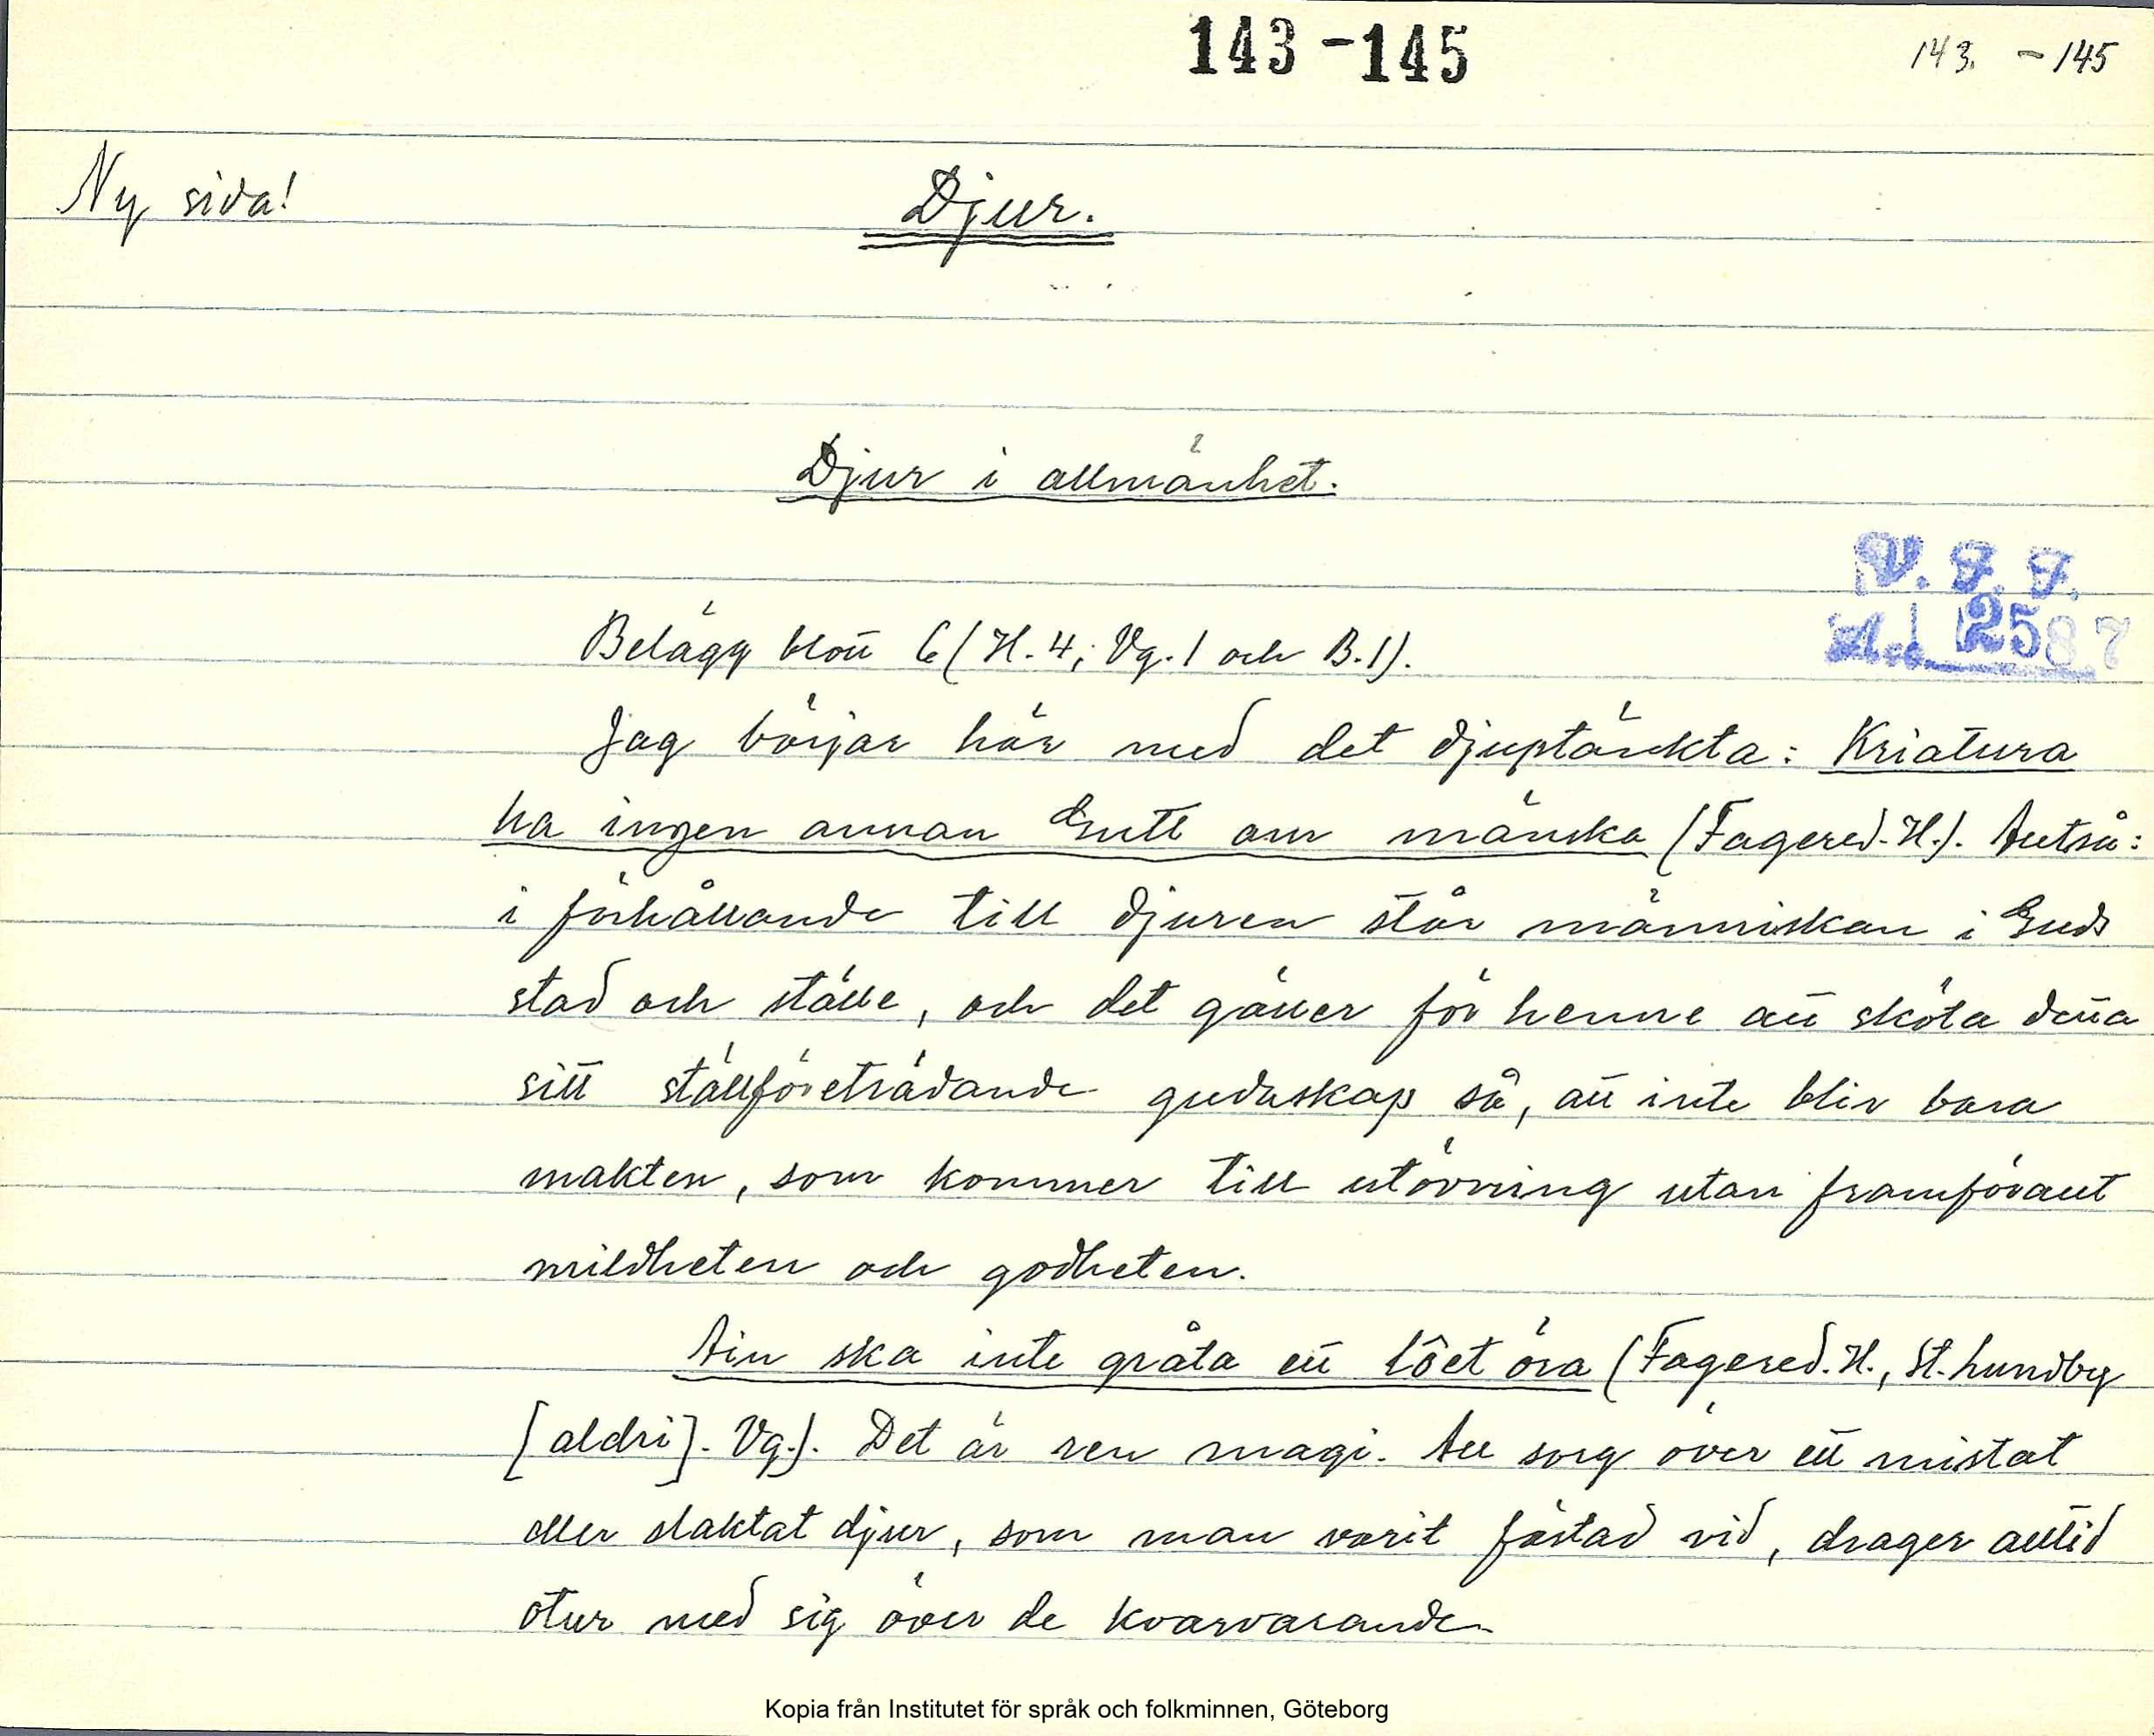 143-145
143. - 145
Ny sida!
Djur.
Djur i allmänhet.
V. F. F.
Acc. 2587
Belägg blott 6 (H. 4; Vg. 1 och B. 1).
Jag börjar här med det djuptänkta: Kriatura
ha ingen annan Gutt änn mänska (Fagered. H.). Alltså:
i förhållande till djuren står människan i Guds
stad och ställe, och det gäller för henne att sköta detta
sitt ställföreträdande gudaskap så, att inte bliv bara
makten, som kommer till utövning utan framförallt
mildheten och godheten.
Ain ska inte gråta ett löet öra (Fagered. H., St. Lundby
[aldri]. Vg.). Det är ren magi. All sorg över ett mistat
eller slaktat djur, som man varit fästad vid, drager alltid
otur med sig över de kvarvarande.
Kopia från Institutet för språk och folkminnen, Göteborg